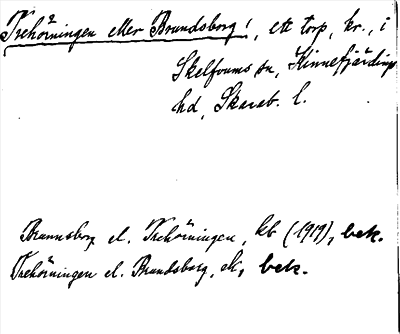 Trehörningen eller Brandsborg!, ett torp, kr., i
Skelfvums sn, Kinnefjärdings
hd, Skarab. l.
Brannsborg el. Trehörningen, kb (1919), bek.
Trehörningen el. Brandsborg, ek, bek.